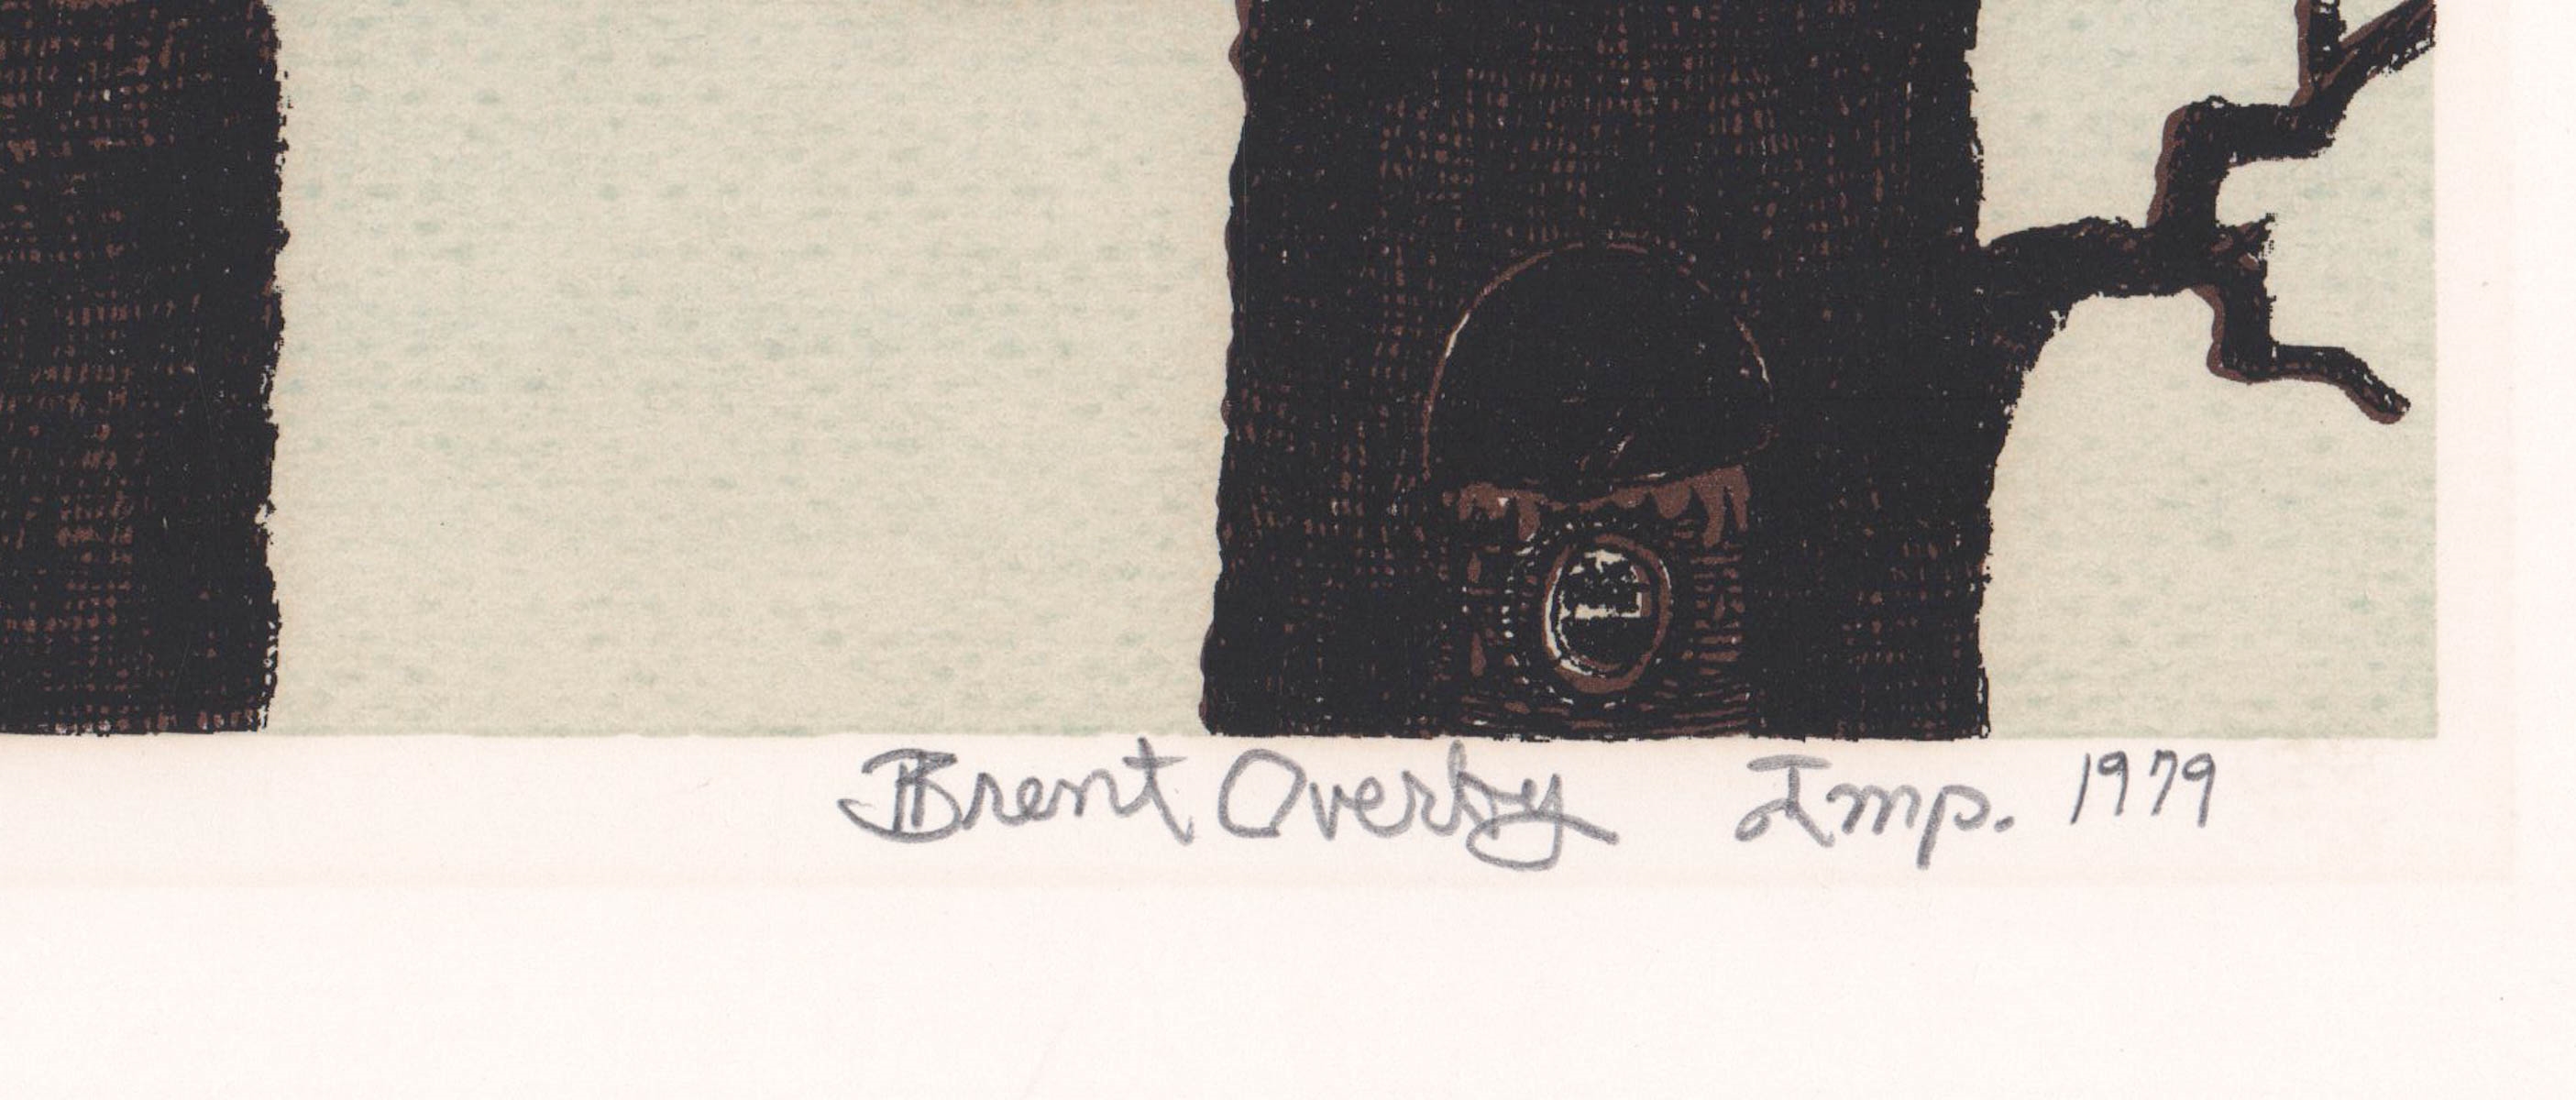 Brent Overby Imp. 1979